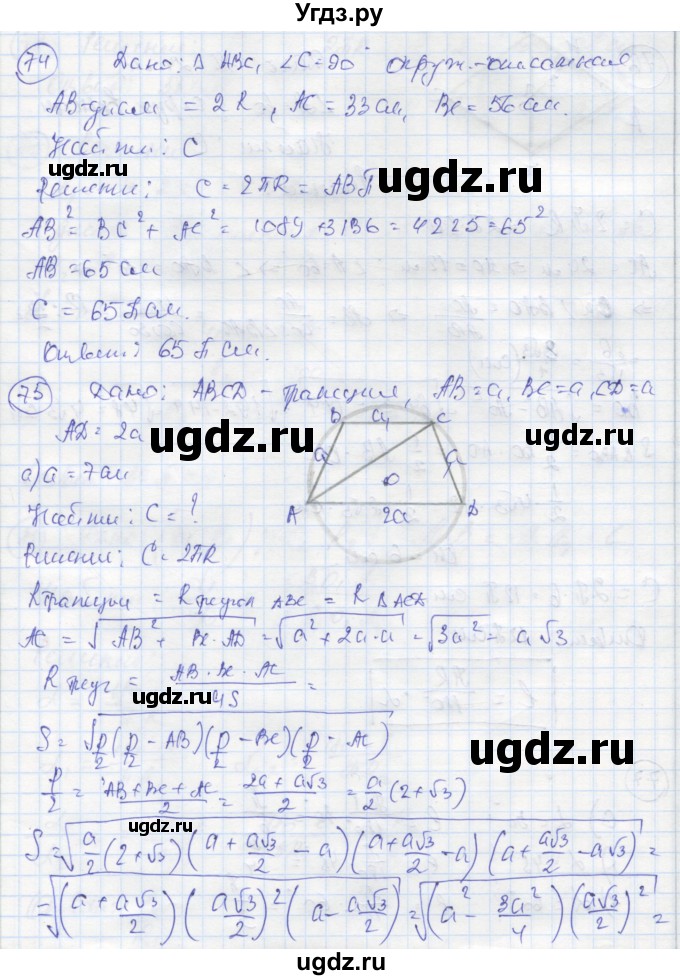 Угзз.ру
74 Дано: Δ ABC, ∠C=90° окруж-описанная
AB-диам = 2R, AC = 33 см, BC = 56 см.
Найти: C
Решение: C = 2πR = ABπ
AB² = BC² + AC² = 1089 + 3136 = 4225 = 65²
AB = 65 см
C = 65π см.
Ответ: 65π см.
75 Дано: ABCD - трапеция, AB = a, BC = a, CD = a
AD = 2a
ugdz.ru
ugdz.ru
а) a = 7 см
Найти: C = ?
B a C
a a
O
A 2a D
Решение: C = 2πR
ugdz.ru
R трапеции = R треугол ABC = R Δ ACD
AC = √(AB² + BC·AD) = √(a² + 2a·a) = √(3a²) = a√3
R треуг = (AB·BC·AC)/(4S) =
ugdz.ru
S = √(p/2 (p/2 - AB)(p/2 - BC)(p/2 - AC))
p/2 = (AB+BC+AC)/2 = (2a+a√3)/2 = a/2 (2+√3)
ugdz.ru
ugdz.ru
S = √(a/2 (2+√3)(a + a√3/2 - a)(a + a√3/2 - a)(a + a√3/2 - a√3)) =
= √((a + a√3/2)(a√3/2)²(a - a√3/2)) = √((a² - 3a²/4)(a√3/2)²) =
ugdz.ru
ugdz.ru